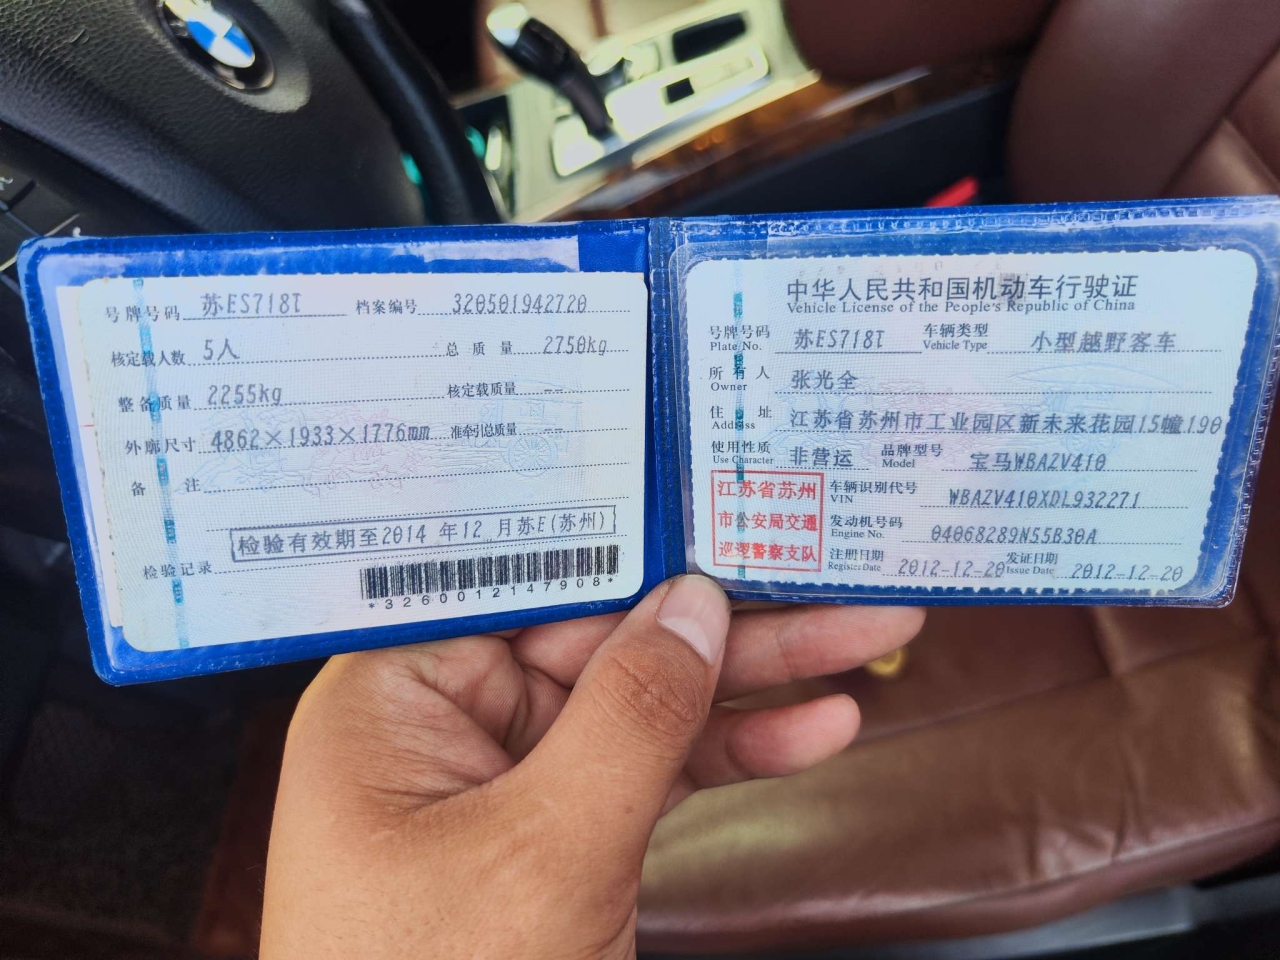 号牌号码 苏ES718T 档案编号 320501942720
核定载人数 5人 总质量 2750kg
整备质量 2255kg 核定载质量 --
外廓尺寸 4862×1933×1776mm 准牵引总质量 --
备注
检验有效期至2014年12月苏E(苏州)
检验记录
*3260012147908*
中华人民共和国机动车行驶证
Vehicle License of the People's Republic of China
号牌号码 苏ES718T 车辆类型 小型越野客车
Plate No. Vehicle Type
所有人 张光全
Owner
住址 江苏省苏州市工业园区新未来花园15幢190
Address
使用性质 非营运 品牌型号 宝马WBAZV410
Use Character Model
江苏省苏州
市公安局交通
巡逻警察支队
车辆识别代号 WBAZV410XDL932271
VIN
发动机号码 04068289N55B30A
Engine No.
注册日期 2012-12-20 发证日期 2012-12-20
Register Date Issue Date